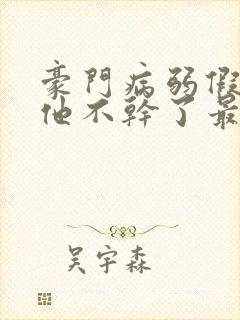 豪門病弱假
他不幹了最
吳宇森